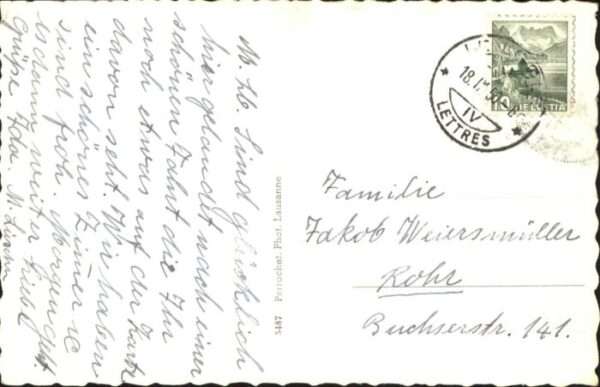 M. Lb. Sind glücklich
hier glandet nach einer
schönen Fahrt die Ihr
noch etwas auf der Karte
davon seht. Wir haben
ein schönes Zimer u
sind froh. Morgen geht
es dann weiter Liebe
Grüsse Ida M.
5487 Perrochet, Phot. Lausanne
18.
IV
LETTRES
10 HELVETIA
Familie
Jakob Weiersmüller
Rohr
Buchserstr. 141.